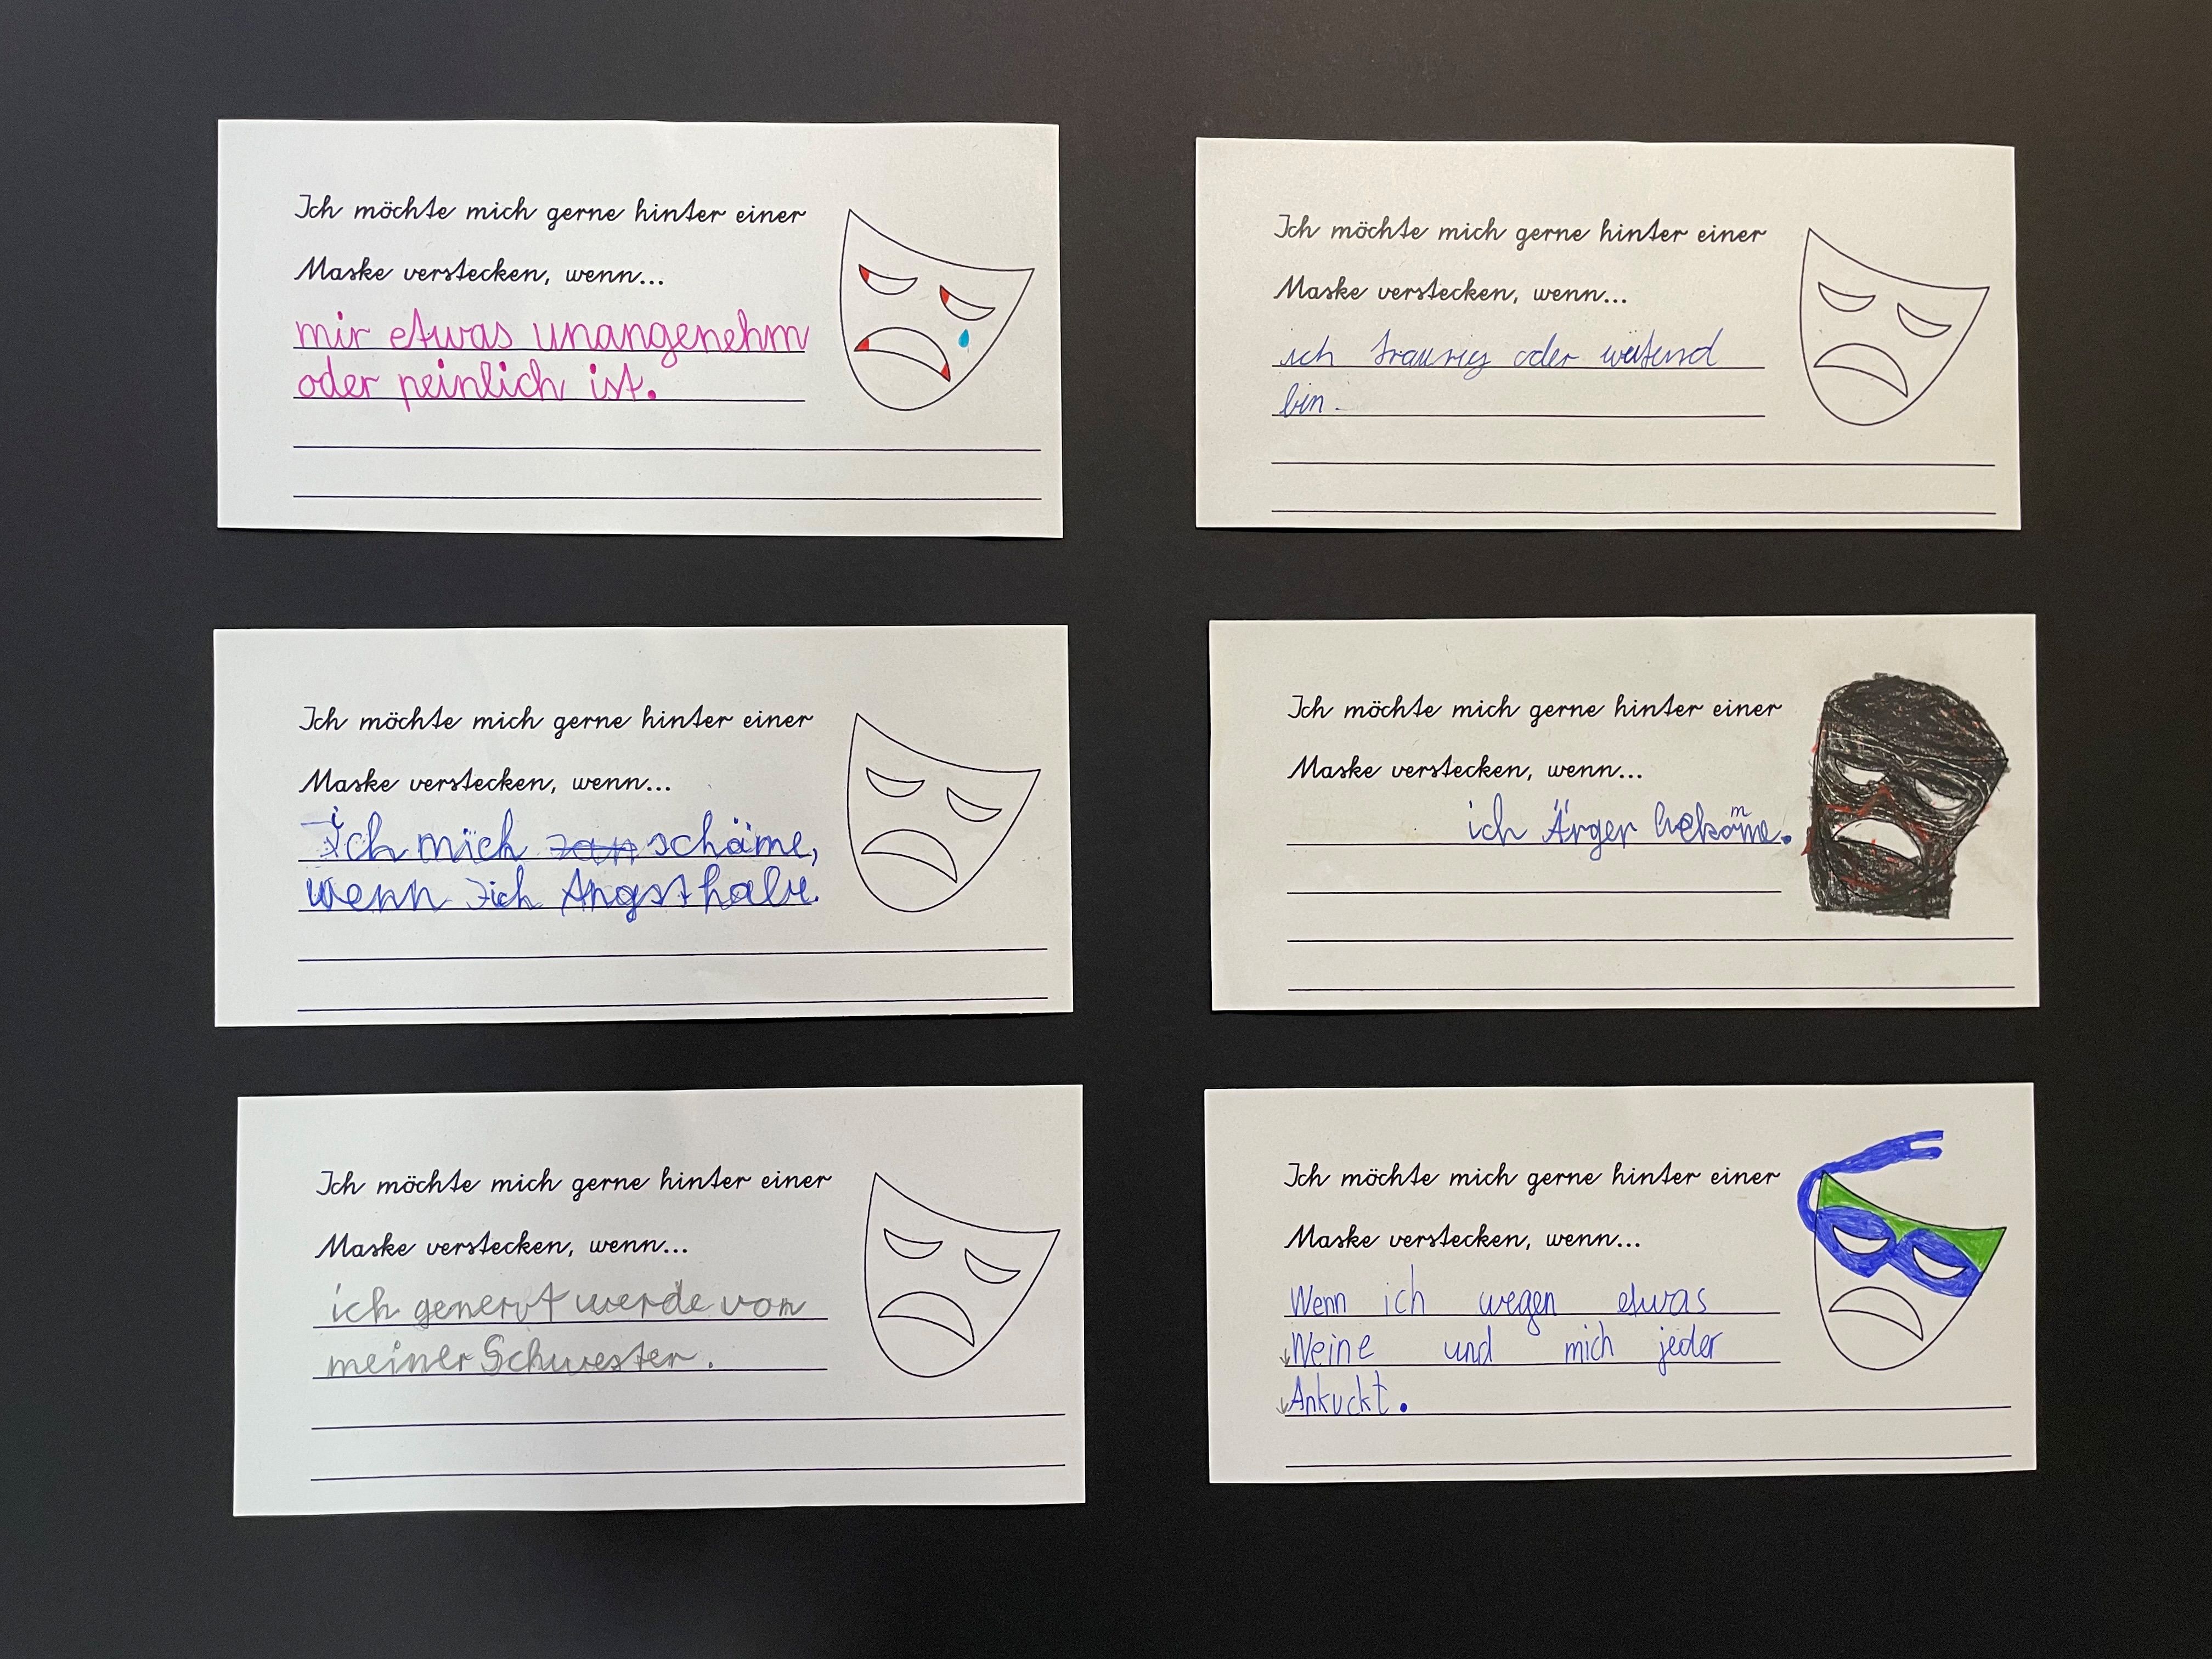 Ich möchte mich gerne hinter einer
Maske verstecken, wenn...
mir etwas unangenehm
oder peinlich ist.
Ich möchte mich gerne hinter einer
Maske verstecken, wenn...
ich traurig oder wütend
bin.
Ich möchte mich gerne hinter einer
Maske verstecken, wenn...
ich mich schäme,
wenn ich Angst habe.
Ich möchte mich gerne hinter einer
Maske verstecken, wenn...
ich Ärger bekomme.
Ich möchte mich gerne hinter einer
Maske verstecken, wenn...
ich genervt werde von
meiner Schwester.
Ich möchte mich gerne hinter einer
Maske verstecken, wenn...
Wenn ich wegen etwas
Weine und mich jeder
Ankuckt.